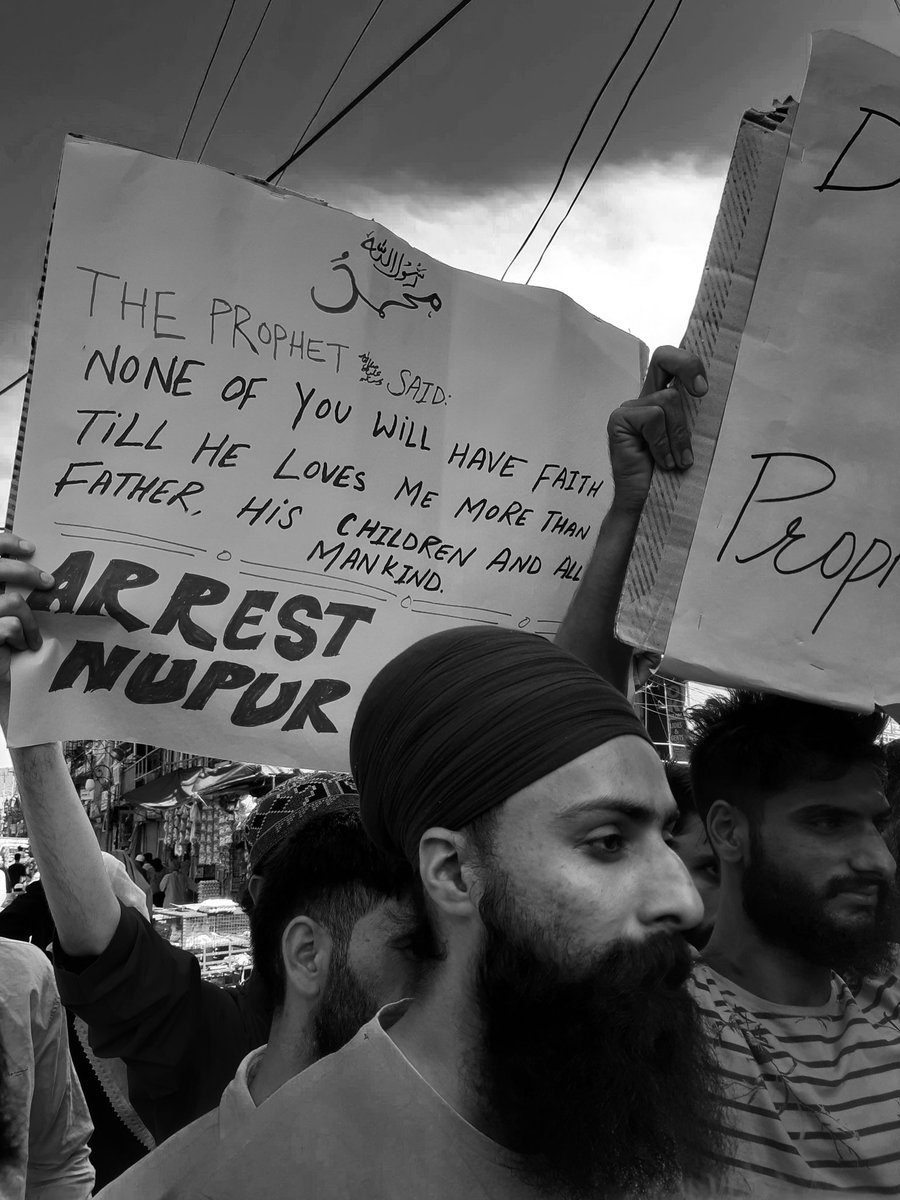 محمد رسول الله
THE PROPHET ﷺ SAID:
NONE OF YOU WILL HAVE FAITH
TILL HE LOVES ME MORE THAN
FATHER, HIS CHILDREN AND ALL
MANKIND.
ARREST
NUPUR
D
Prop